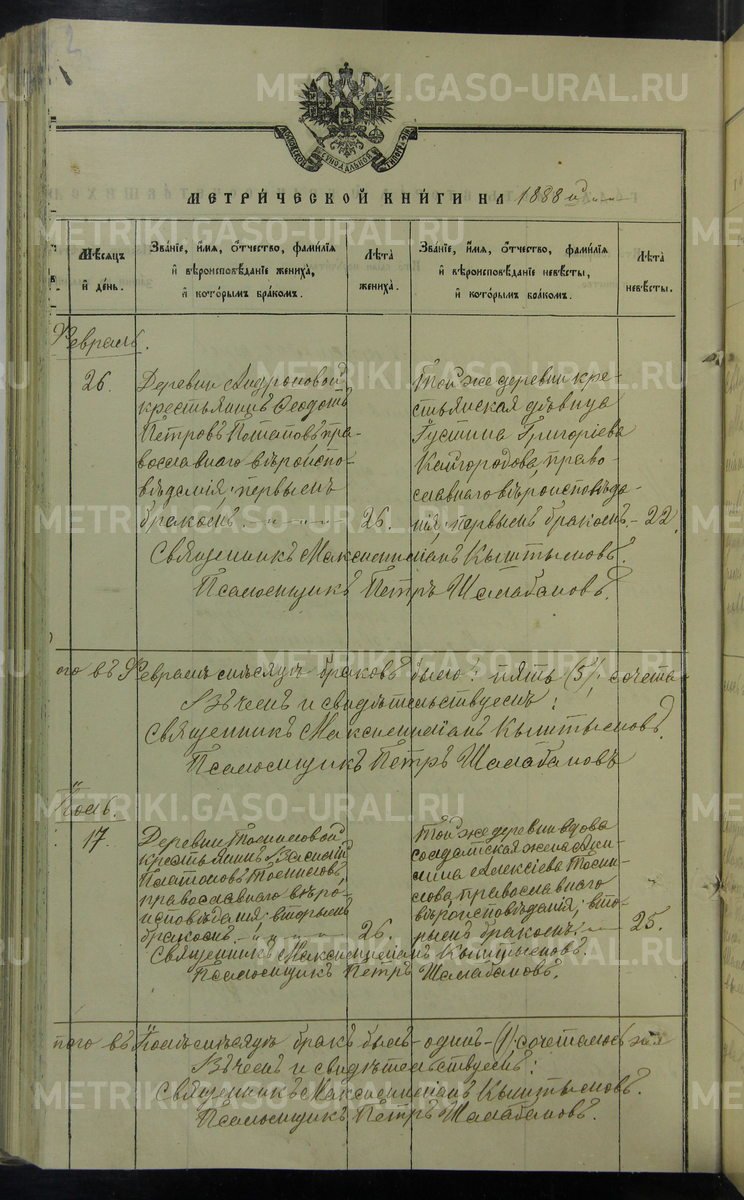 2
МОСКОВСКОЙ СѴНОДАЛЬНОЙ ТИПОГРАФІИ
МЕТРИ́ЧЕСКОЙ КНИ́ГИ НА 1888 годъ
Мѣ́сяцъ и́ де́нь.
Зва́нїе, и́мя, ѻ́тчество, фами́лїя и́ вѣроисповѣ́данїе жениха̀, и́ кото́рымъ бра́комъ.
Лѣ́та жениха̀.
Зва́нїе, и́мя, ѻ́тчество, фами́лїя и́ вѣроисповѣ́данїе невѣ́сты, и́ кото́рымъ бра́комъ.
Лѣ́та невѣ́сты.
Февраль.
26.
Деревни Андроновой
крестьянинъ Ѳеодотъ
Петровъ Потаповъ, пра-
вославнаго вѣроиспо-
вѣданія; первымъ
бракомъ.
26.
Той же деревни кре-
стьянская дѣвица
Густина Григоріева
Кайгородова, право-
славнаго вѣроисповѣда-
нія; первымъ бракомъ.
22.
Священникъ Максимиліанъ Кыштымовъ.
Псаломщикъ Петръ Шалабановъ.
ого въ Февралѣ мѣсяцѣ браковъ было: пять (5); сочета-
въ чемъ и свидѣтельствуемъ:
Священникъ Максимиліанъ Кыштымовъ.
Псаломщикъ Петръ Шалабановъ
Іюль.
17.
Деревни
крестьянинъ Василій
Платоновъ
православнаго вѣро-
исповѣданія; вторымъ
бракомъ.
26.
Той же деревни вдова
солдатская жена
Алексіева
православнаго
вѣроисповѣданія; вто-
рымъ бракомъ.
25.
Священникъ Максимиліанъ Кыштымовъ.
Псаломщикъ Петръ Шалабановъ.
того въ Іюлѣ мѣсяцѣ бракъ былъ один (1) сочеталось
въ чемъ и свидѣтельствуемъ:
Священникъ Максимиліанъ Кыштымовъ.
Псаломщикъ Петръ Шалабановъ.
METRIKI.GASO-URAL.RU